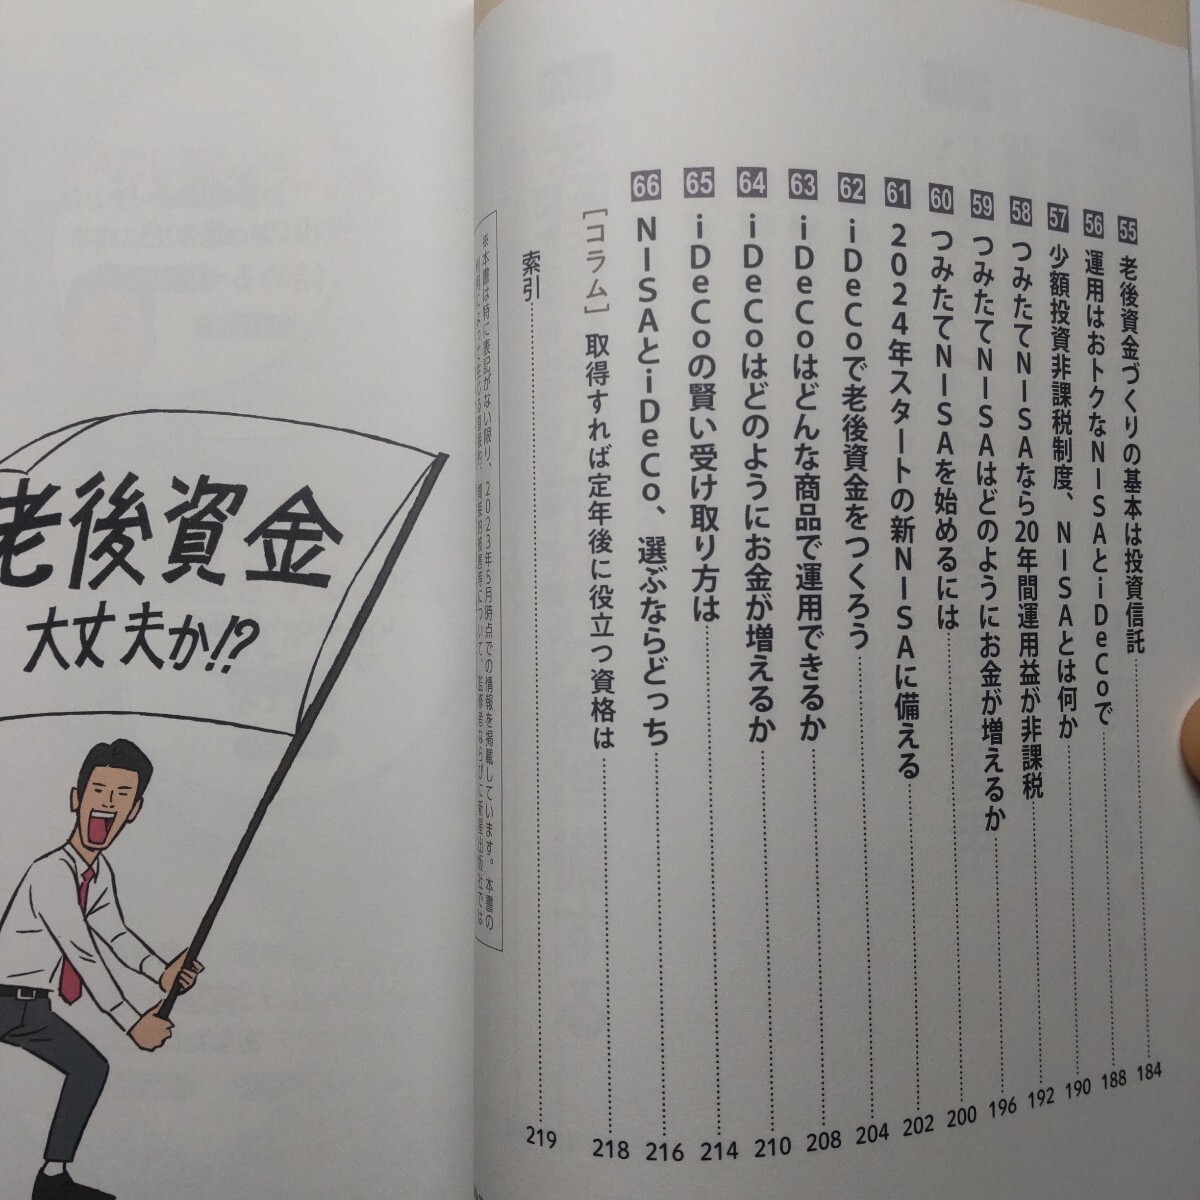 55 老後資金づくりの基本は投資信託 184
56 運用はおトクなNISAとiDeCoで 188
57 少額投資非課税制度、NISAとは何か 190
58 つみたてNISAなら20年間運用益が非課税 192
59 つみたてNISAはどのようにお金が増えるか 196
60 つみたてNISAを始めるには 200
61 2024年スタートの新NISAに備える 202
62 iDeCoで老後資金をつくろう 204
63 iDeCoはどんな商品で運用できるか 208
64 iDeCoはどのようにお金が増えるか 210
65 iDeCoの賢い受け取り方は 214
66 NISAとiDeCo、選ぶならどっち 216
[コラム] 取得すれば定年後に役立つ資格は 218
索引 219
※本書は特に表記がない限り、2023年5月時点での情報を掲載しています。本書の
利用によって生じる直接的、間接的被害等について、監修者ならびに新星出版社では
老後資金
大丈夫か!?